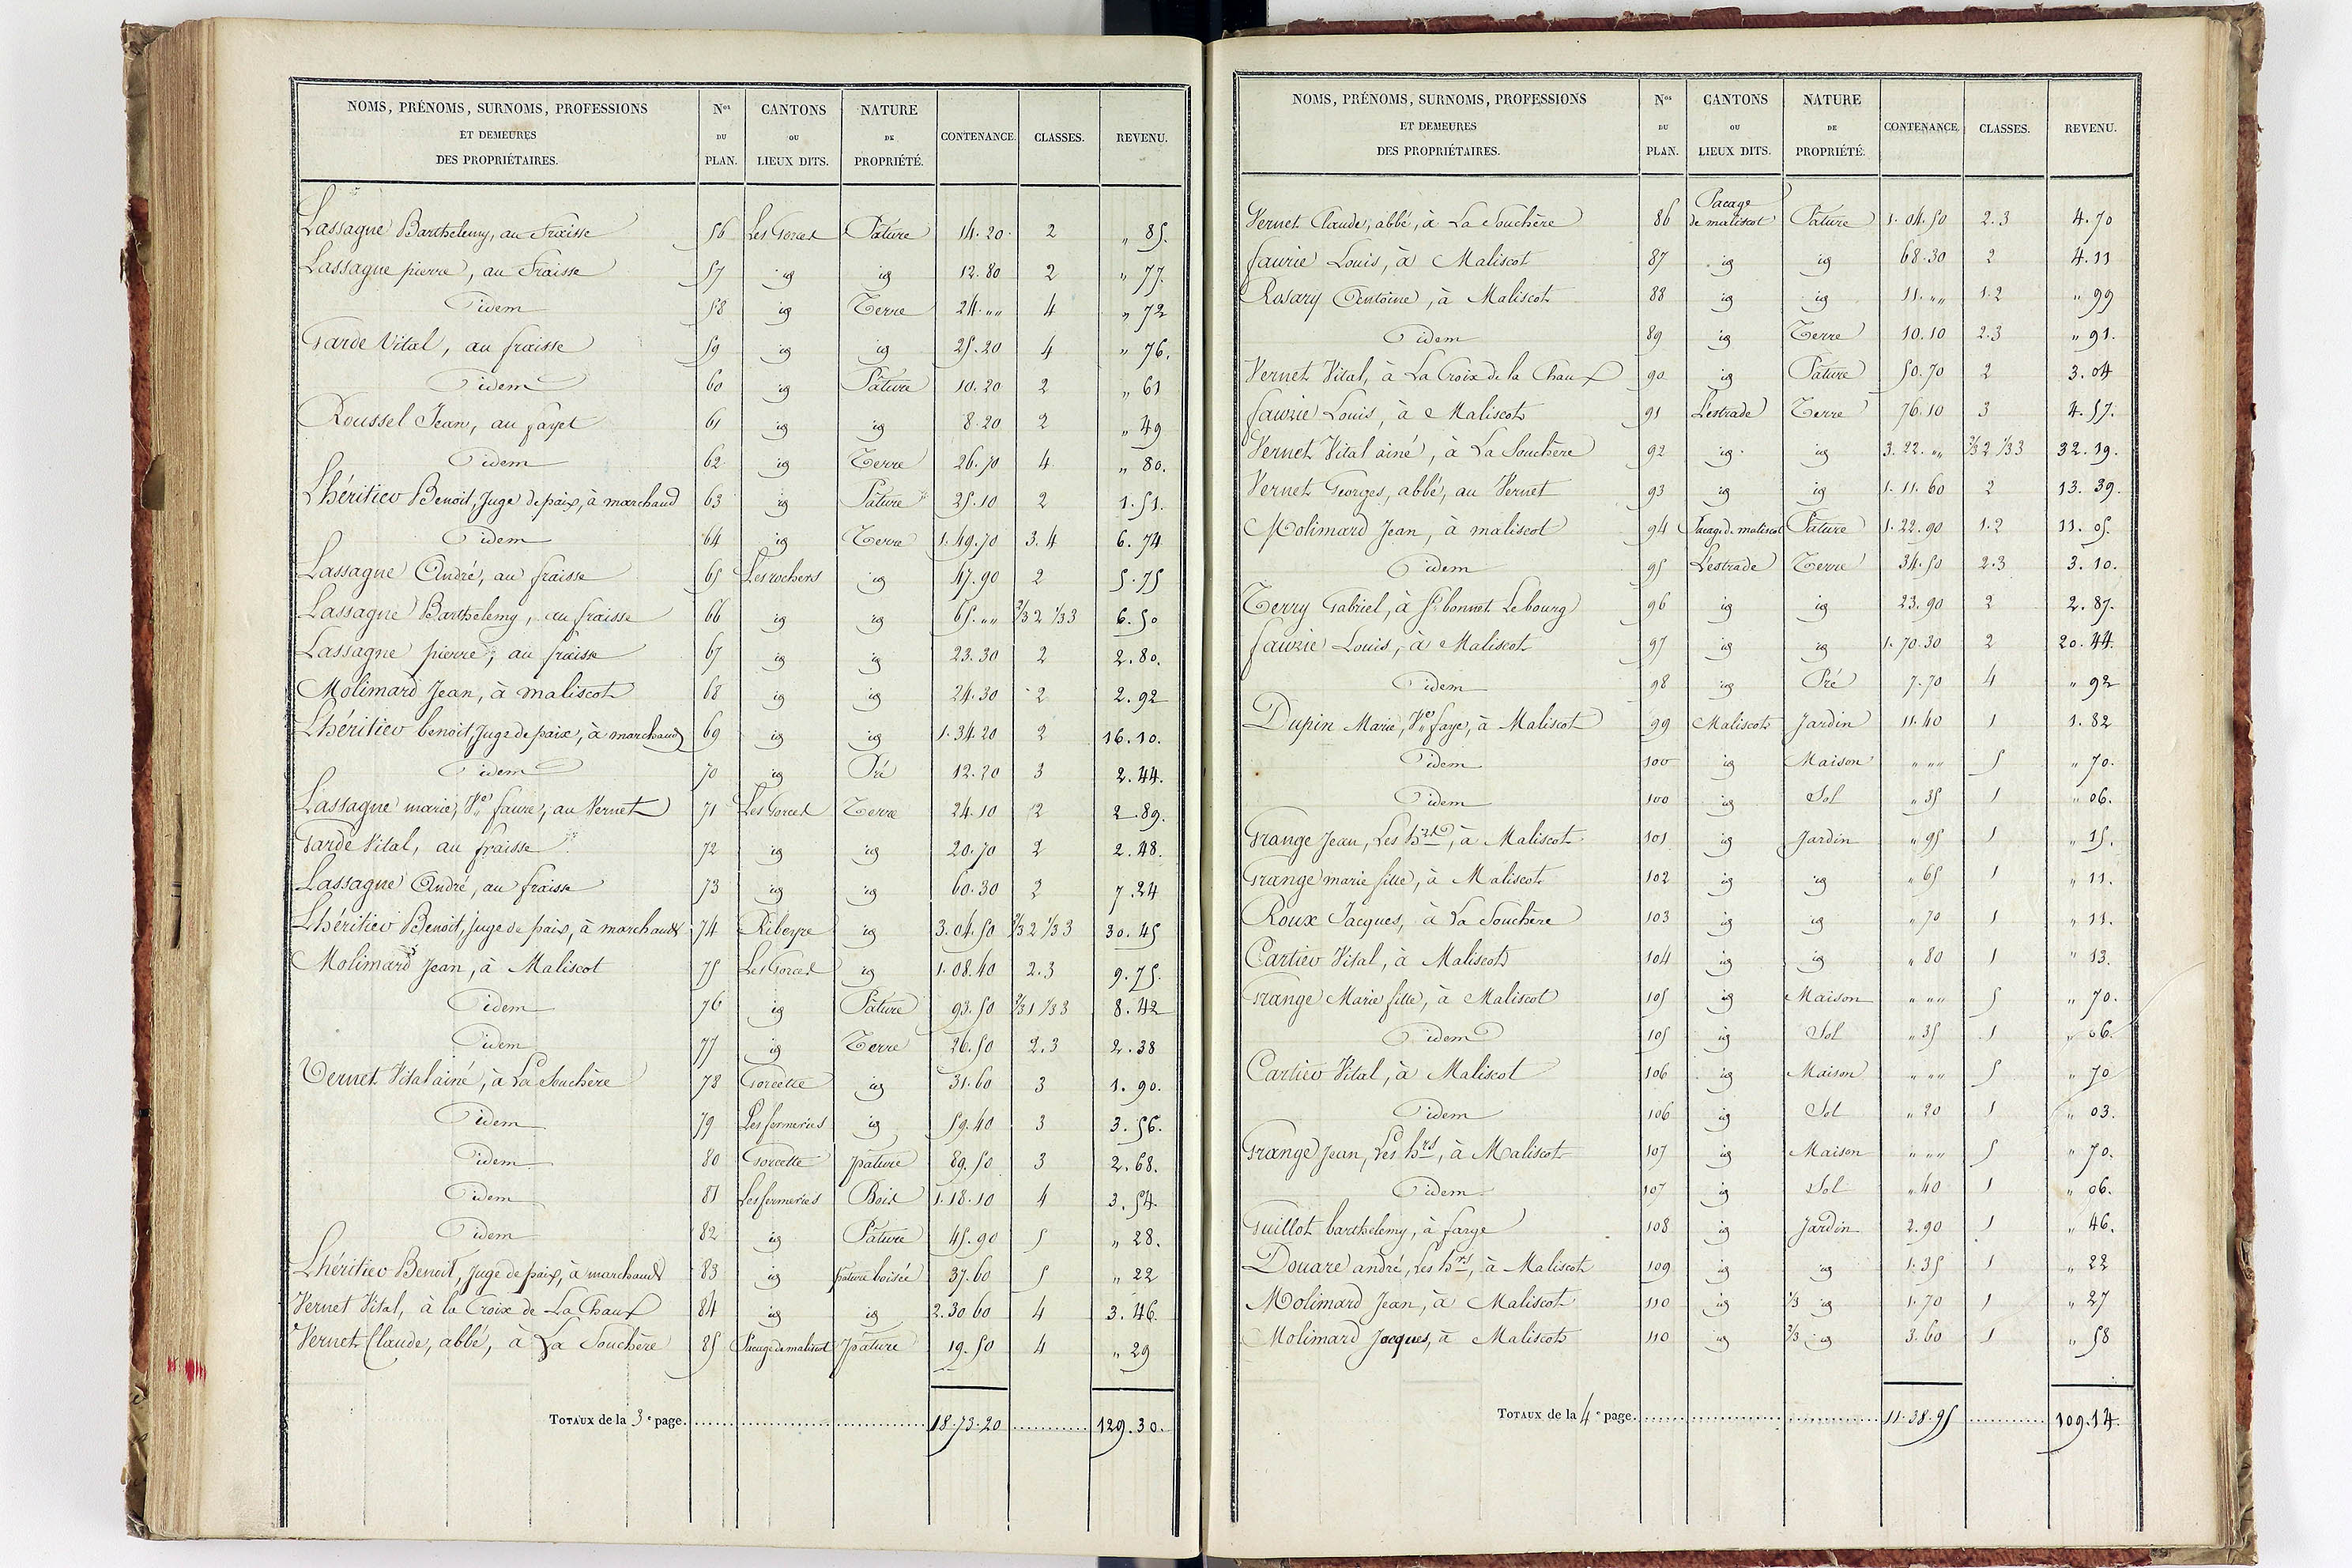 NOMS, PRÉNOMS, SURNOMS, PROFESSIONS ET DEMEURES DES PROPRIÉTAIRES. Nos DU PLAN. CANTONS OU LIEUX DITS. NATURE DE PROPRIÉTÉ. CONTENANCE. CLASSES. REVENU.
Lassagne Barthelemy, au Fraisse 56 Les Gorces Pature 14.20 2 „ 85.
Lassagne pierre, au Fraisse 57 id id 12.80 2 „ 77.
idem 58 id Terre 24.„„ 4 „ 72
Garde Vital, au fraisse 59 id id 25.20 4 „ 76.
idem 60 id Pature 10.20 2 „ 61
Roussel Jean, au fayet 61 id id 8.20 2 „ 49
idem 62 id Terre 26.70 4 „ 80.
Lhéritier Benoit, Juge de paix, à marchaud 63 id Pature 25.10 2 1.51.
idem 64 id Terre 1.49.70 3.4 6.74
Lassagne André, au fraisse 65 Les rochers id 47.90 2 5.75
Lassagne Barthelemy, au fraisse 66 id id 65.„„ 2/3 2 1/3 3 6.50
Lassagne pierre, au fraisse 67 id id 23.30 2 2.80.
Molimard Jean, à maliscot 68 id id 24.30 2 2.92
Lhéritier benoit, Juge de paix, à marchaud 69 id id 1.34.20 2 16.10.
idem 70 id Pré 12.20 3 2.44.
Lassagne marie, Ve faure, au Vernet 71 Les Gorces Terre 24.10 2 2.89.
Garde Vital, au fraisse 72 id id 20.70 2 2.48.
Lassagne André, au fraisse 73 id id 60.30 2 7.24
Lhéritier Benoit, juge de paix, à marchaud 74 Ribeyre id 3.04.50 2/3 2 1/3 3 30.45
Molimard Jean, à Maliscot 75 Les Gorces id 1.08.40 2.3 9.75.
idem 76 id Pature 93.50 2/3 1 1/3 3 8.42
idem 77 id Terre 26.50 2.3 2.38
Vernet Vital ainé, à La Souchère 78 Gorcette id 31.60 3 1.90.
idem 79 Les fermeries id 59.40 3 3.56.
idem 80 Gorcette pature 89.50 3 2.68.
idem 81 Les fermeries Bois 1.18.10 4 3.54.
idem 82 id Pature 45.90 5 „ 28.
Lhéritier Benoit, Juge de paix, à marchaud 83 id pature boisée 37.60 5 „ 22
Vernet Vital, à la Croix de La Chaux 84 id id 2.30.60 4 3.46.
Vernet Claude, abbé, à La Souchère 85 Pacage de maliscot pature 19.50 4 „ 29
TOTAUX de la 3e page. 18.73.20 129.30.
NOMS, PRÉNOMS, SURNOMS, PROFESSIONS ET DEMEURES DES PROPRIÉTAIRES. Nos DU PLAN. CANTONS OU LIEUX DITS. NATURE DE PROPRIÉTÉ. CONTENANCE. CLASSES. REVENU.
Vernet Claude, abbé, à La Souchère 86 Pacage de maliscot Pature 1.04.50 2.3 4.70
faurie Louis, à Maliscot 87 id id 68.30 2 4.11
Rosary Antoine, à Maliscot 88 id id 11.„„ 1.2 „ 99
idem 89 id Terre 10.10 2.3 „ 91.
Vernet Vital, à La Croix de la Chaux 90 id Pature 50.70 2 3.04
faurie Louis, à Maliscot 91 L'estrade Terre 76.10 3 4.57.
Vernet Vital ainé, à La Souchère 92 id id 3.22.„„ 2/3 2 1/3 3 32.19.
Vernet Georges, abbé, au Vernet 93 id id 1.11.60 2 13.39.
Molimard Jean, à maliscot 94 Pacage de maliscot Pature 1.22.90 1.2 11.05.
idem 95 L'estrade Terre 34.50 2.3 3.10.
Terry Gabriel, à St bonnet Le bourg 96 id id 23.90 2 2.87.
faurie Louis, à Maliscot 97 id id 1.70.30 2 20.44.
idem 98 id Pré 7.70 4 „ 92
Dupin Marie, Ve faye, à Maliscot 99 Maliscot Jardin 11.40 1 1.82
idem 100 id Maison „ „„ 5 „ 70.
idem 100 id Sol „ 35 1 „ 06.
Grange Jean, Les hrs, à Maliscot 101 id Jardin „ 95 1 „ 15.
Grange marie fille, à Maliscot 102 id id „ 65 1 „ 11.
Roux Jacques, à La Souchère 103 id id „ 70 1 „ 11.
Cartier Vital, à Maliscot 104 id id „ 80 1 „ 13.
Grange Marie fille, à Maliscot 105 id Maison „ „„ 5 „ 70.
idem 105 id Sol „ 35 1 „ 06.
Cartier Vital, à Maliscot 106 id Maison „ „„ 5 „ 70
idem 106 id Sol „ 20 1 „ 03.
Grange Jean, Les hrs, à Maliscot 107 id Maison „ „„ 5 „ 70.
idem 107 id Sol „ 40 1 „ 06.
Guillot barthelemy, à farge 108 id Jardin 2.90 1 „ 46.
Douare andré, Les hrs, à Maliscot 109 id id 1.35 1 „ 22
Molimard Jean, à Maliscot 110 id 1/3 id 1.70 1 „ 27
Molimard Jacques, à Maliscot 110 id 2/3 id 3.60 1 „ 58
TOTAUX de la 4e page. 11.38.95 109.14.